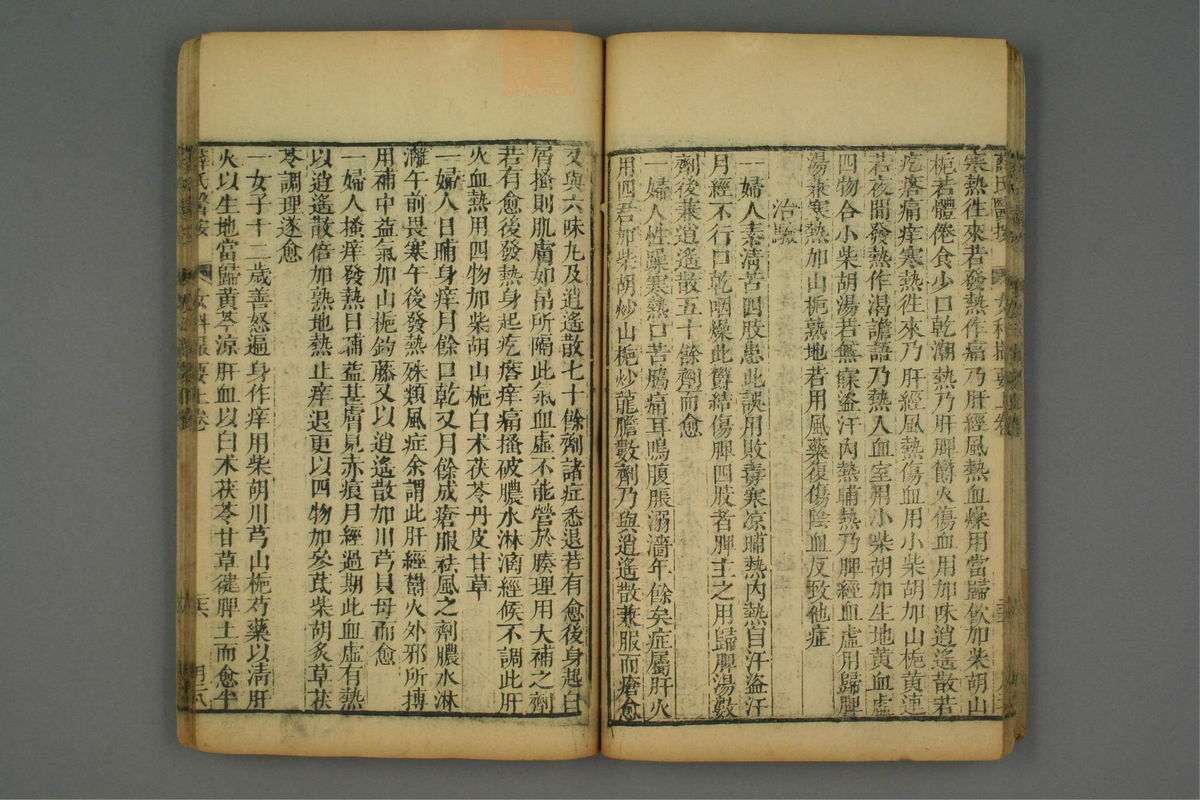 寒熱徃來者發熱作痛乃肝經風熱血燥用當歸飲加柴胡山
梔若體倦食少口乾潮熱乃肝脾鬱火傷血用加味逍遙散若
疙瘩痛痒寒熱徃來乃肝經風熱傷血用小柴胡加山梔黃連
若夜間發熱作渴譫語乃熱入血室用小柴胡加生地黃血虛
四物合小柴胡湯若無寐盜汗內熱晡熱乃脾經血虛用歸脾
湯兼寒熱加山梔熟地若用風藥復傷陰血反致他症
治驗
一婦人素清苦四肢患此誤用敗毒寒凉晡熱內熱自汗盜汗
月經不行口乾咽燥此鬱結傷脾四肢者脾主之用歸脾湯數
劑後兼逍遙散五十餘劑而愈
一婦人性躁寒熱口苦脇痛耳鳴腹脹溺濇年餘矣症屬肝火
用四君加柴胡炒山梔炒龍膽數劑乃與逍遙散兼服而瘡愈
又與六味丸及逍遙散七十餘劑諸症悉退若有愈後身起白
屑搔則肌膚如帛所隔此氣血虛不能營於腠理用大補之劑
若有愈後發熱身起疙瘩痒痛搔破膿水淋滴經候不調此肝
火血熱用四物加柴胡山梔白朮茯苓丹皮甘草
一婦人日晡身痒月餘口乾又月餘成瘡服祛風之劑膿水淋
灕午前畏寒午後發熱殊類風症余謂此肝經鬱火外邪所搏
用補中益氣加山梔鈎藤又以逍遙散加川芎貝母而愈
一婦人搔痒發熱日晡益甚膚見赤痕月經過期此血虛有熱
以逍遙散倍加熟地熱止痒退更以四物加參芪柴胡炙草茯
苓調理遂愈
一女子十二歲善怒遍身作痒用柴胡川芎山梔芍藥以清肝
火以生地當歸黃芩涼肝血以白朮茯苓甘草健脾土而愈半
薛氏醫按
女科撮要上卷